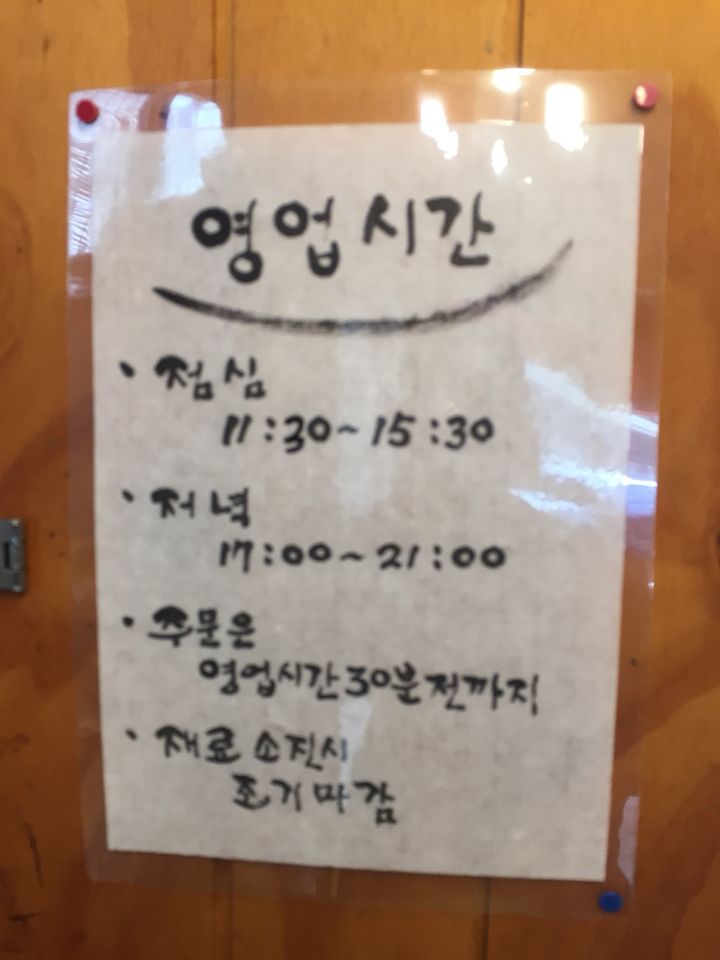 영업시간
· 점심
11:30~15:30
· 저녁
17:00~21:00
· 주문은
영업시간30분전까지
· 재료 소진시
조기마감